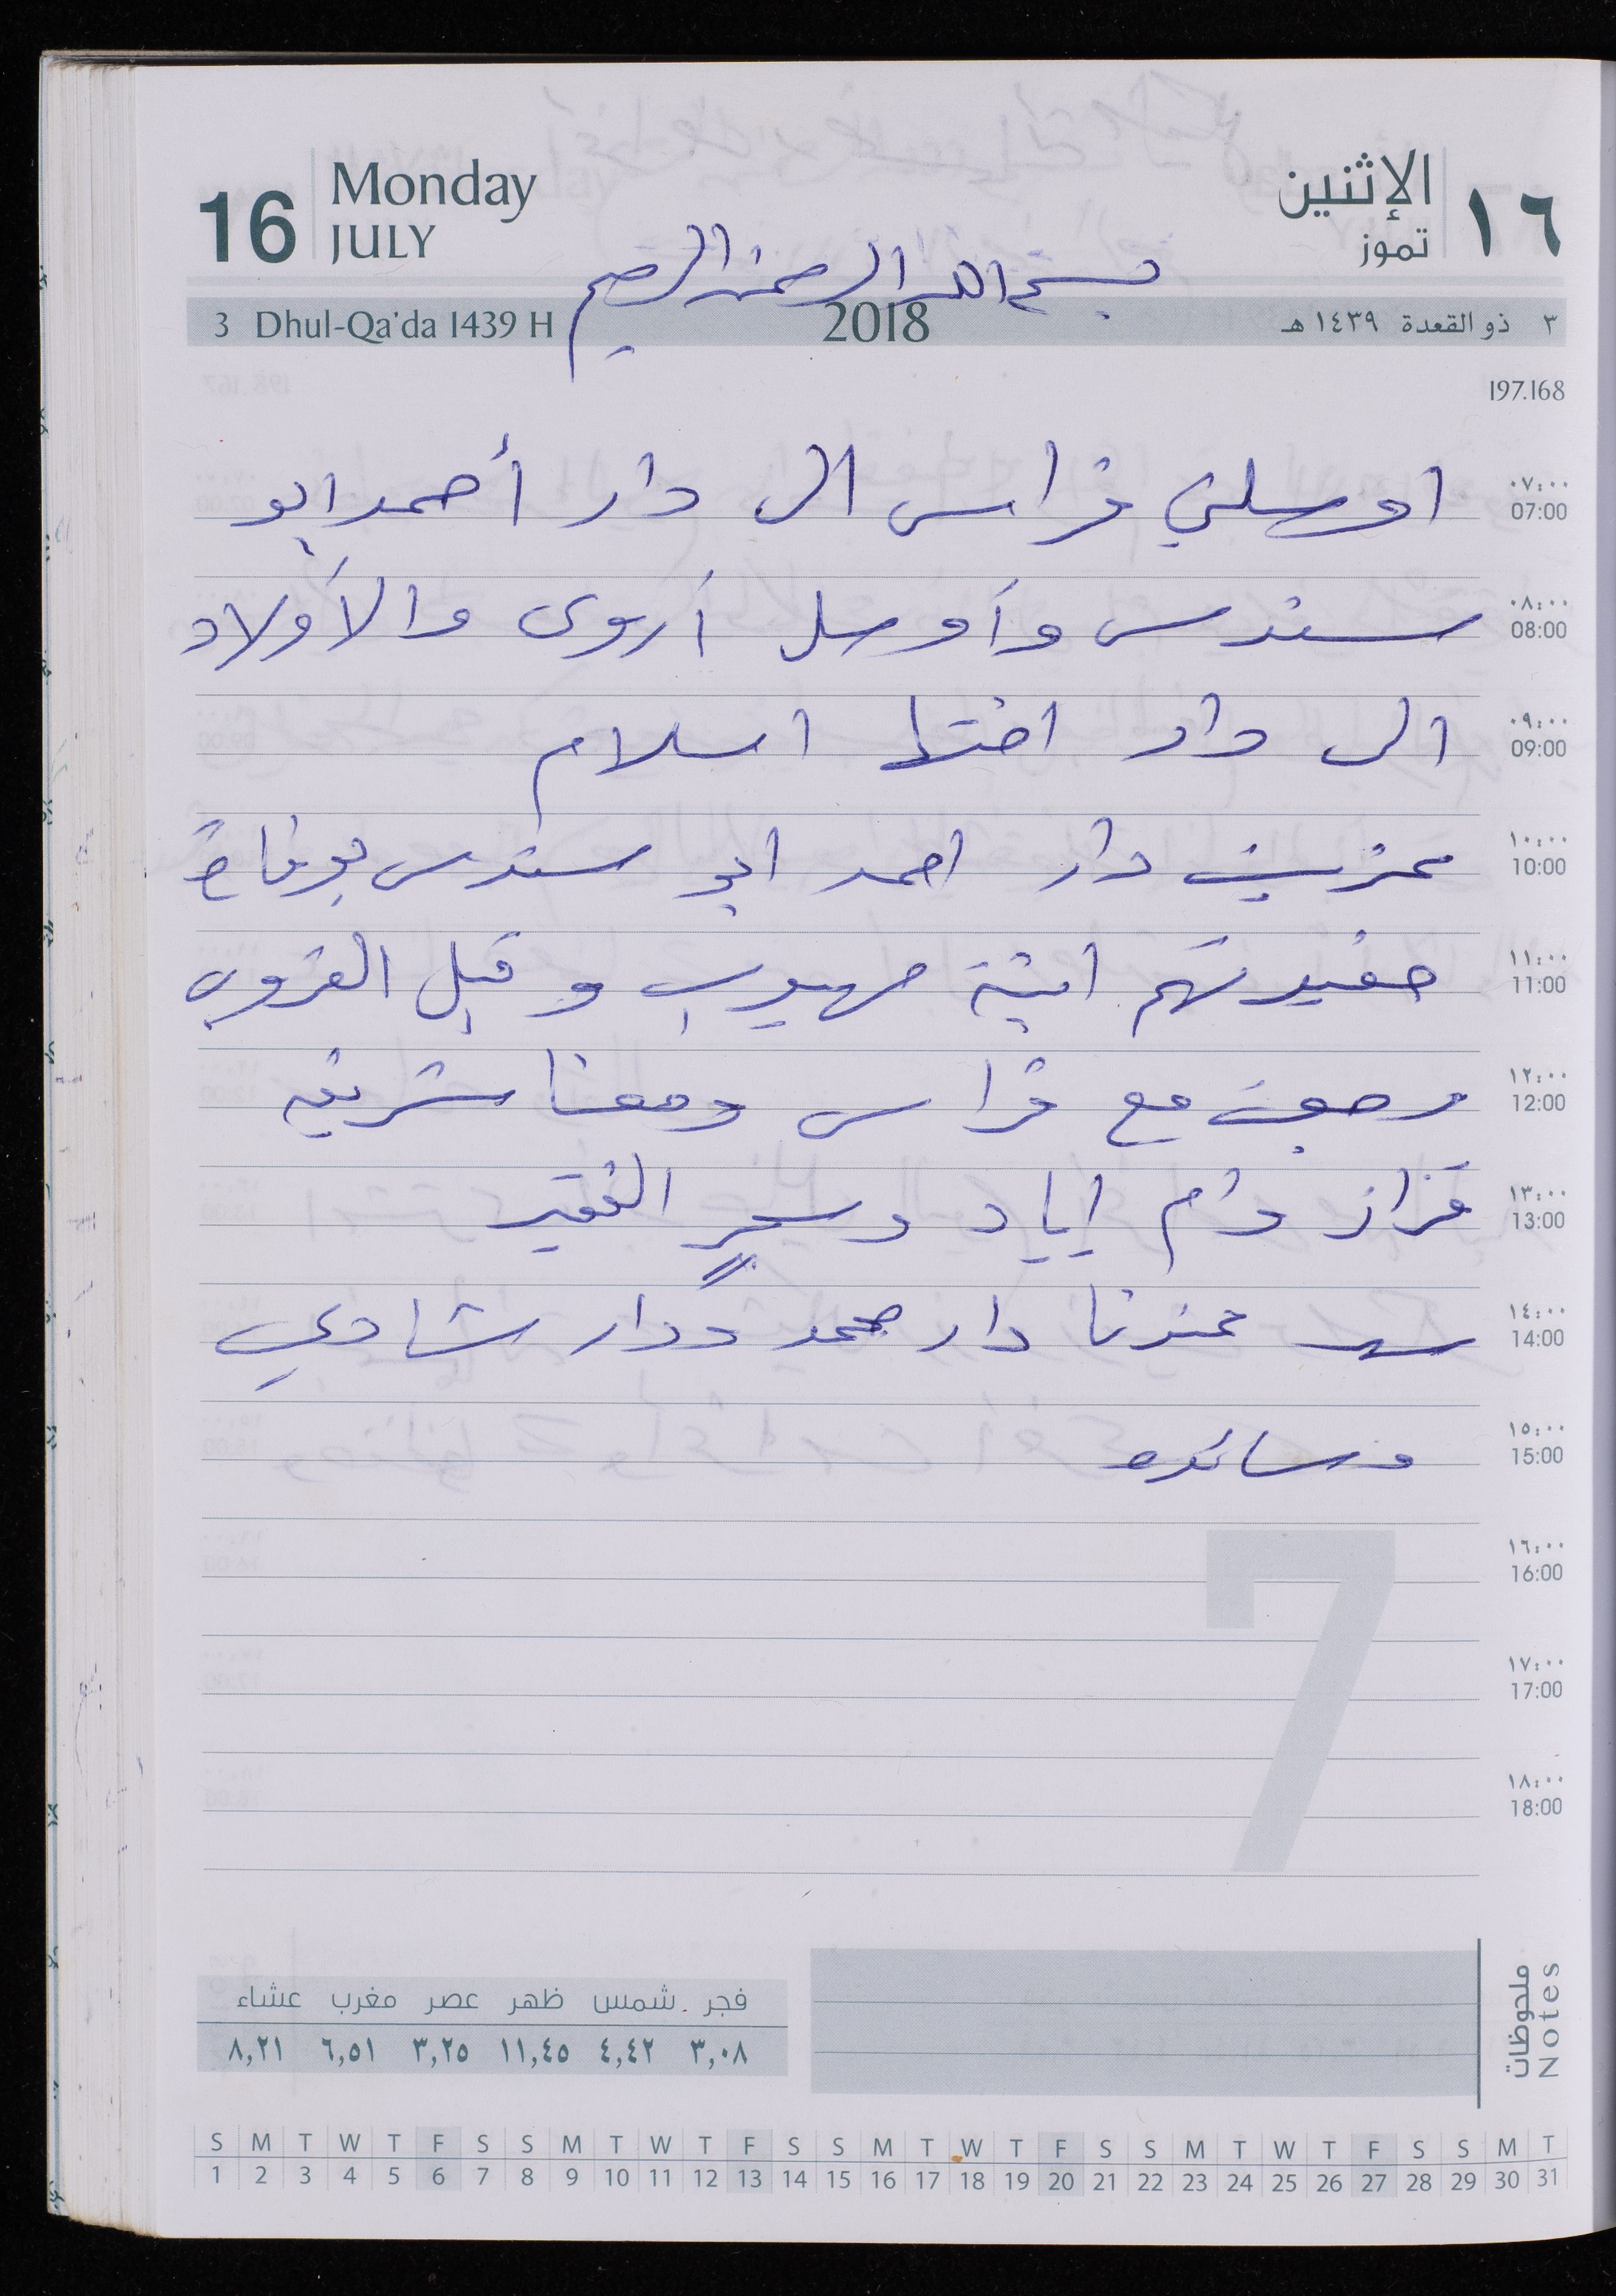 16 Monday JULY
١٦ الإثنين تموز
بسم الله الرحمن الرحيم
3 Dhul-Qa'da 1439 H 2018 ٣ ذو القعدة ١٤٣٩ هـ
197.168
٠٧:٠٠ 07:00 اوصلني فراس الى دار أحمد ابو
٠٨:٠٠ 08:00 سندس وأوصل أروى والأولاد
٠٩:٠٠ 09:00 الى دار اختها اسلام
١٠:٠٠ 10:00 عزيت دار احمد ابو سندس بوفاة
١١:٠٠ 11:00 حفيدتهم ابنة صهيب و قبل الغروب
١٢:٠٠ 12:00 رجعت مع فراس ومعنا شريفة
١٣:٠٠ 13:00 قزاز وام إياد وسحر الفقيه
١٤:٠٠ 14:00 سهر عندنا دار محمد ودار شادي
١٥:٠٠ 15:00 وسائده
١٦:٠٠ 16:00
١٧:٠٠ 17:00
١٨:٠٠ 18:00
7
ملحوظات Notes
فجر شمس ظهر عصر مغرب عشاء
٣,٠٨ ٤,٤٢ ١١,٤٥ ٣,٢٥ ٦,٥١ ٨,٢١
S M T W T F S S M T W T F S S M T W T F S S M T W T F S S M T
1 2 3 4 5 6 7 8 9 10 11 12 13 14 15 16 17 18 19 20 21 22 23 24 25 26 27 28 29 30 31